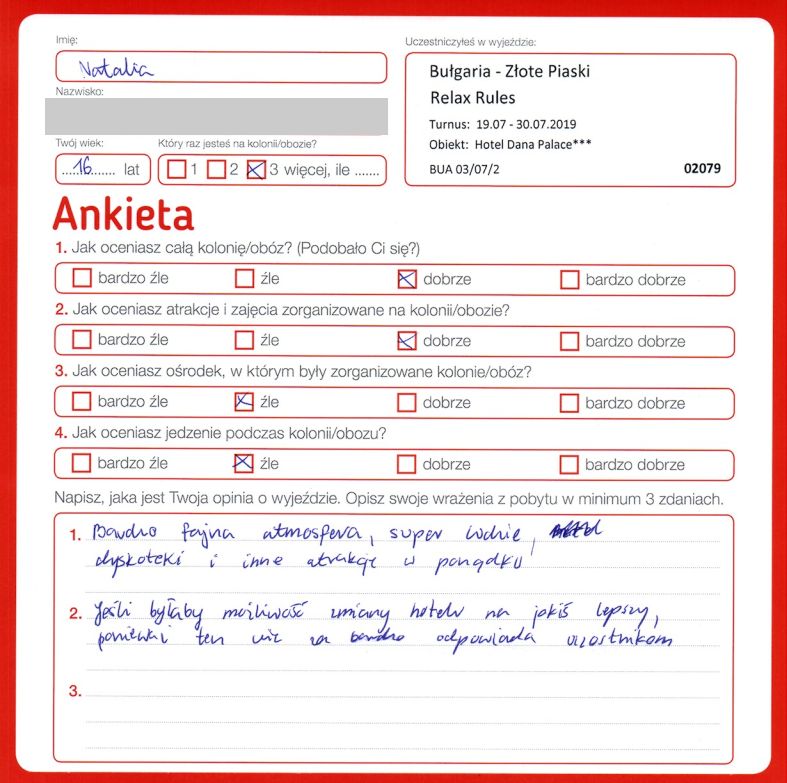 Imię:
Uczestniczyłeś w wyjeździe:
Natalia
Bułgaria - Złote Piaski
Relax Rules
Nazwisko:
Turnus: 19.07 - 30.07.2019
Obiekt: Hotel Dana Palace***
BUA 03/07/2 02079
Twój wiek: Który raz jesteś na kolonii/obozie?
16 lat 1 2 3 więcej, ile .......
Ankieta
1. Jak oceniasz całą kolonię/obóz? (Podobało Ci się?)
bardzo źle źle dobrze bardzo dobrze
2. Jak oceniasz atrakcje i zajęcia zorganizowane na kolonii/obozie?
bardzo źle źle dobrze bardzo dobrze
3. Jak oceniasz ośrodek, w którym były zorganizowane kolonie/obóz?
bardzo źle źle dobrze bardzo dobrze
4. Jak oceniasz jedzenie podczas kolonii/obozu?
bardzo źle źle dobrze bardzo dobrze
Napisz, jaka jest Twoja opinia o wyjeździe. Opisz swoje wrażenia z pobytu w minimum 3 zdaniach.
1. Bardzo fajna atmosfera, super ludzie,
dyskoteki i inne atrakcje w porządku
2. Jeśli byłaby możliwość zmiany hotelu na jakiś lepszy,
ponieważ ten nie za bardzo odpowiada uczestnikom
3.